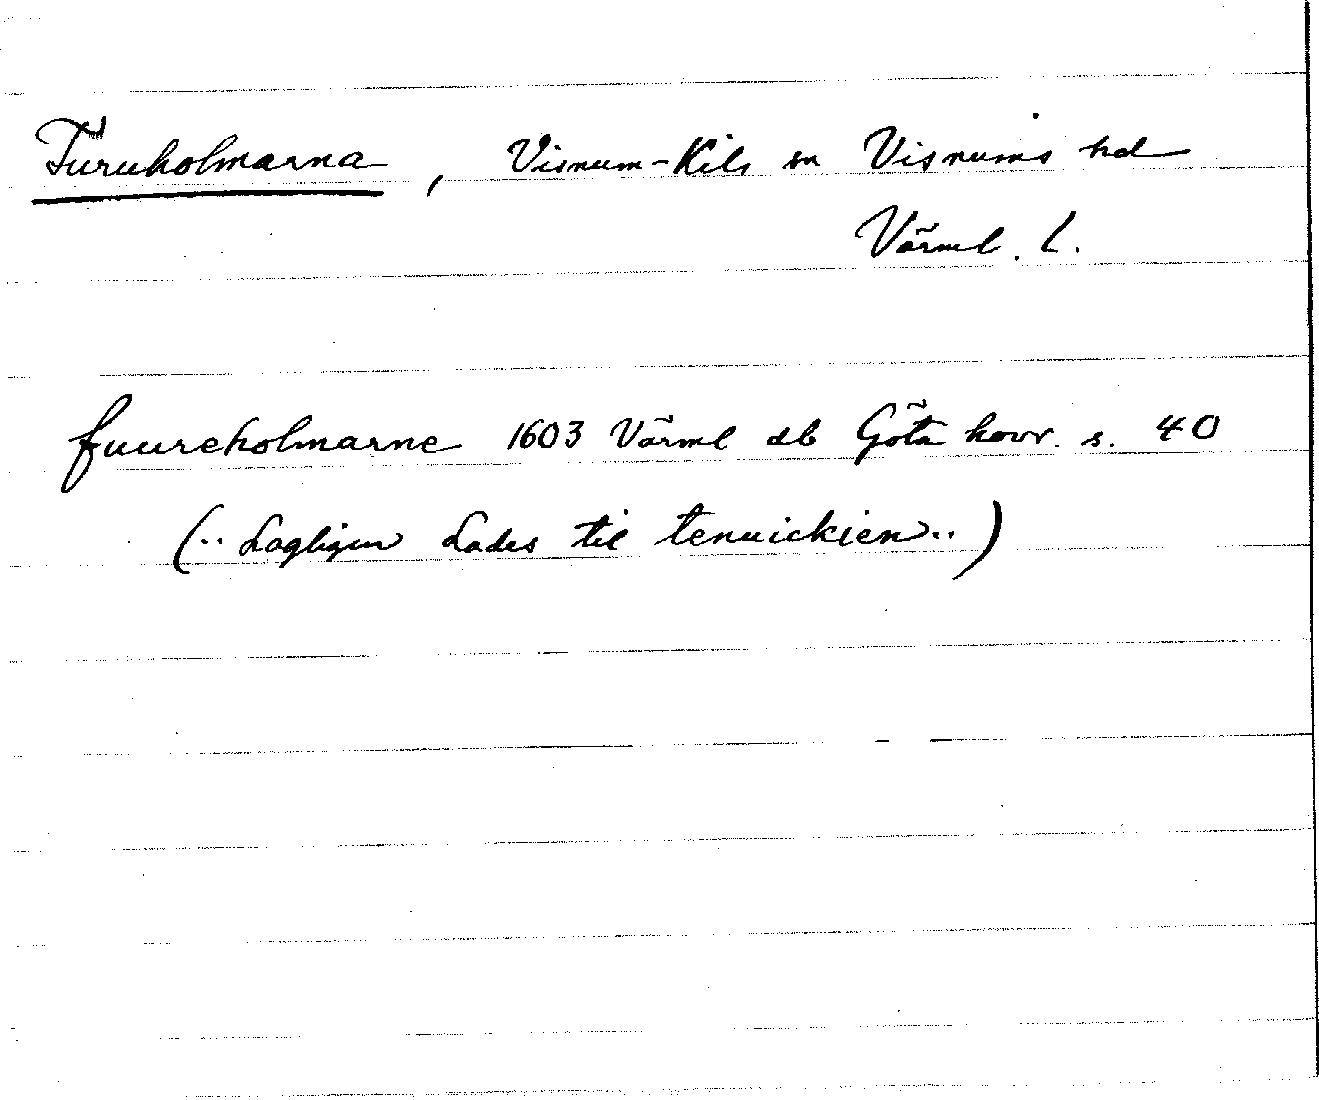 Furuholmarna, Visnum-Kils sn Visnums hd
Värml. l.
fuureholmarne 1603 Värml db Göta hovr. s. 40
(.. Lagligen Lades til tenuickien ..)